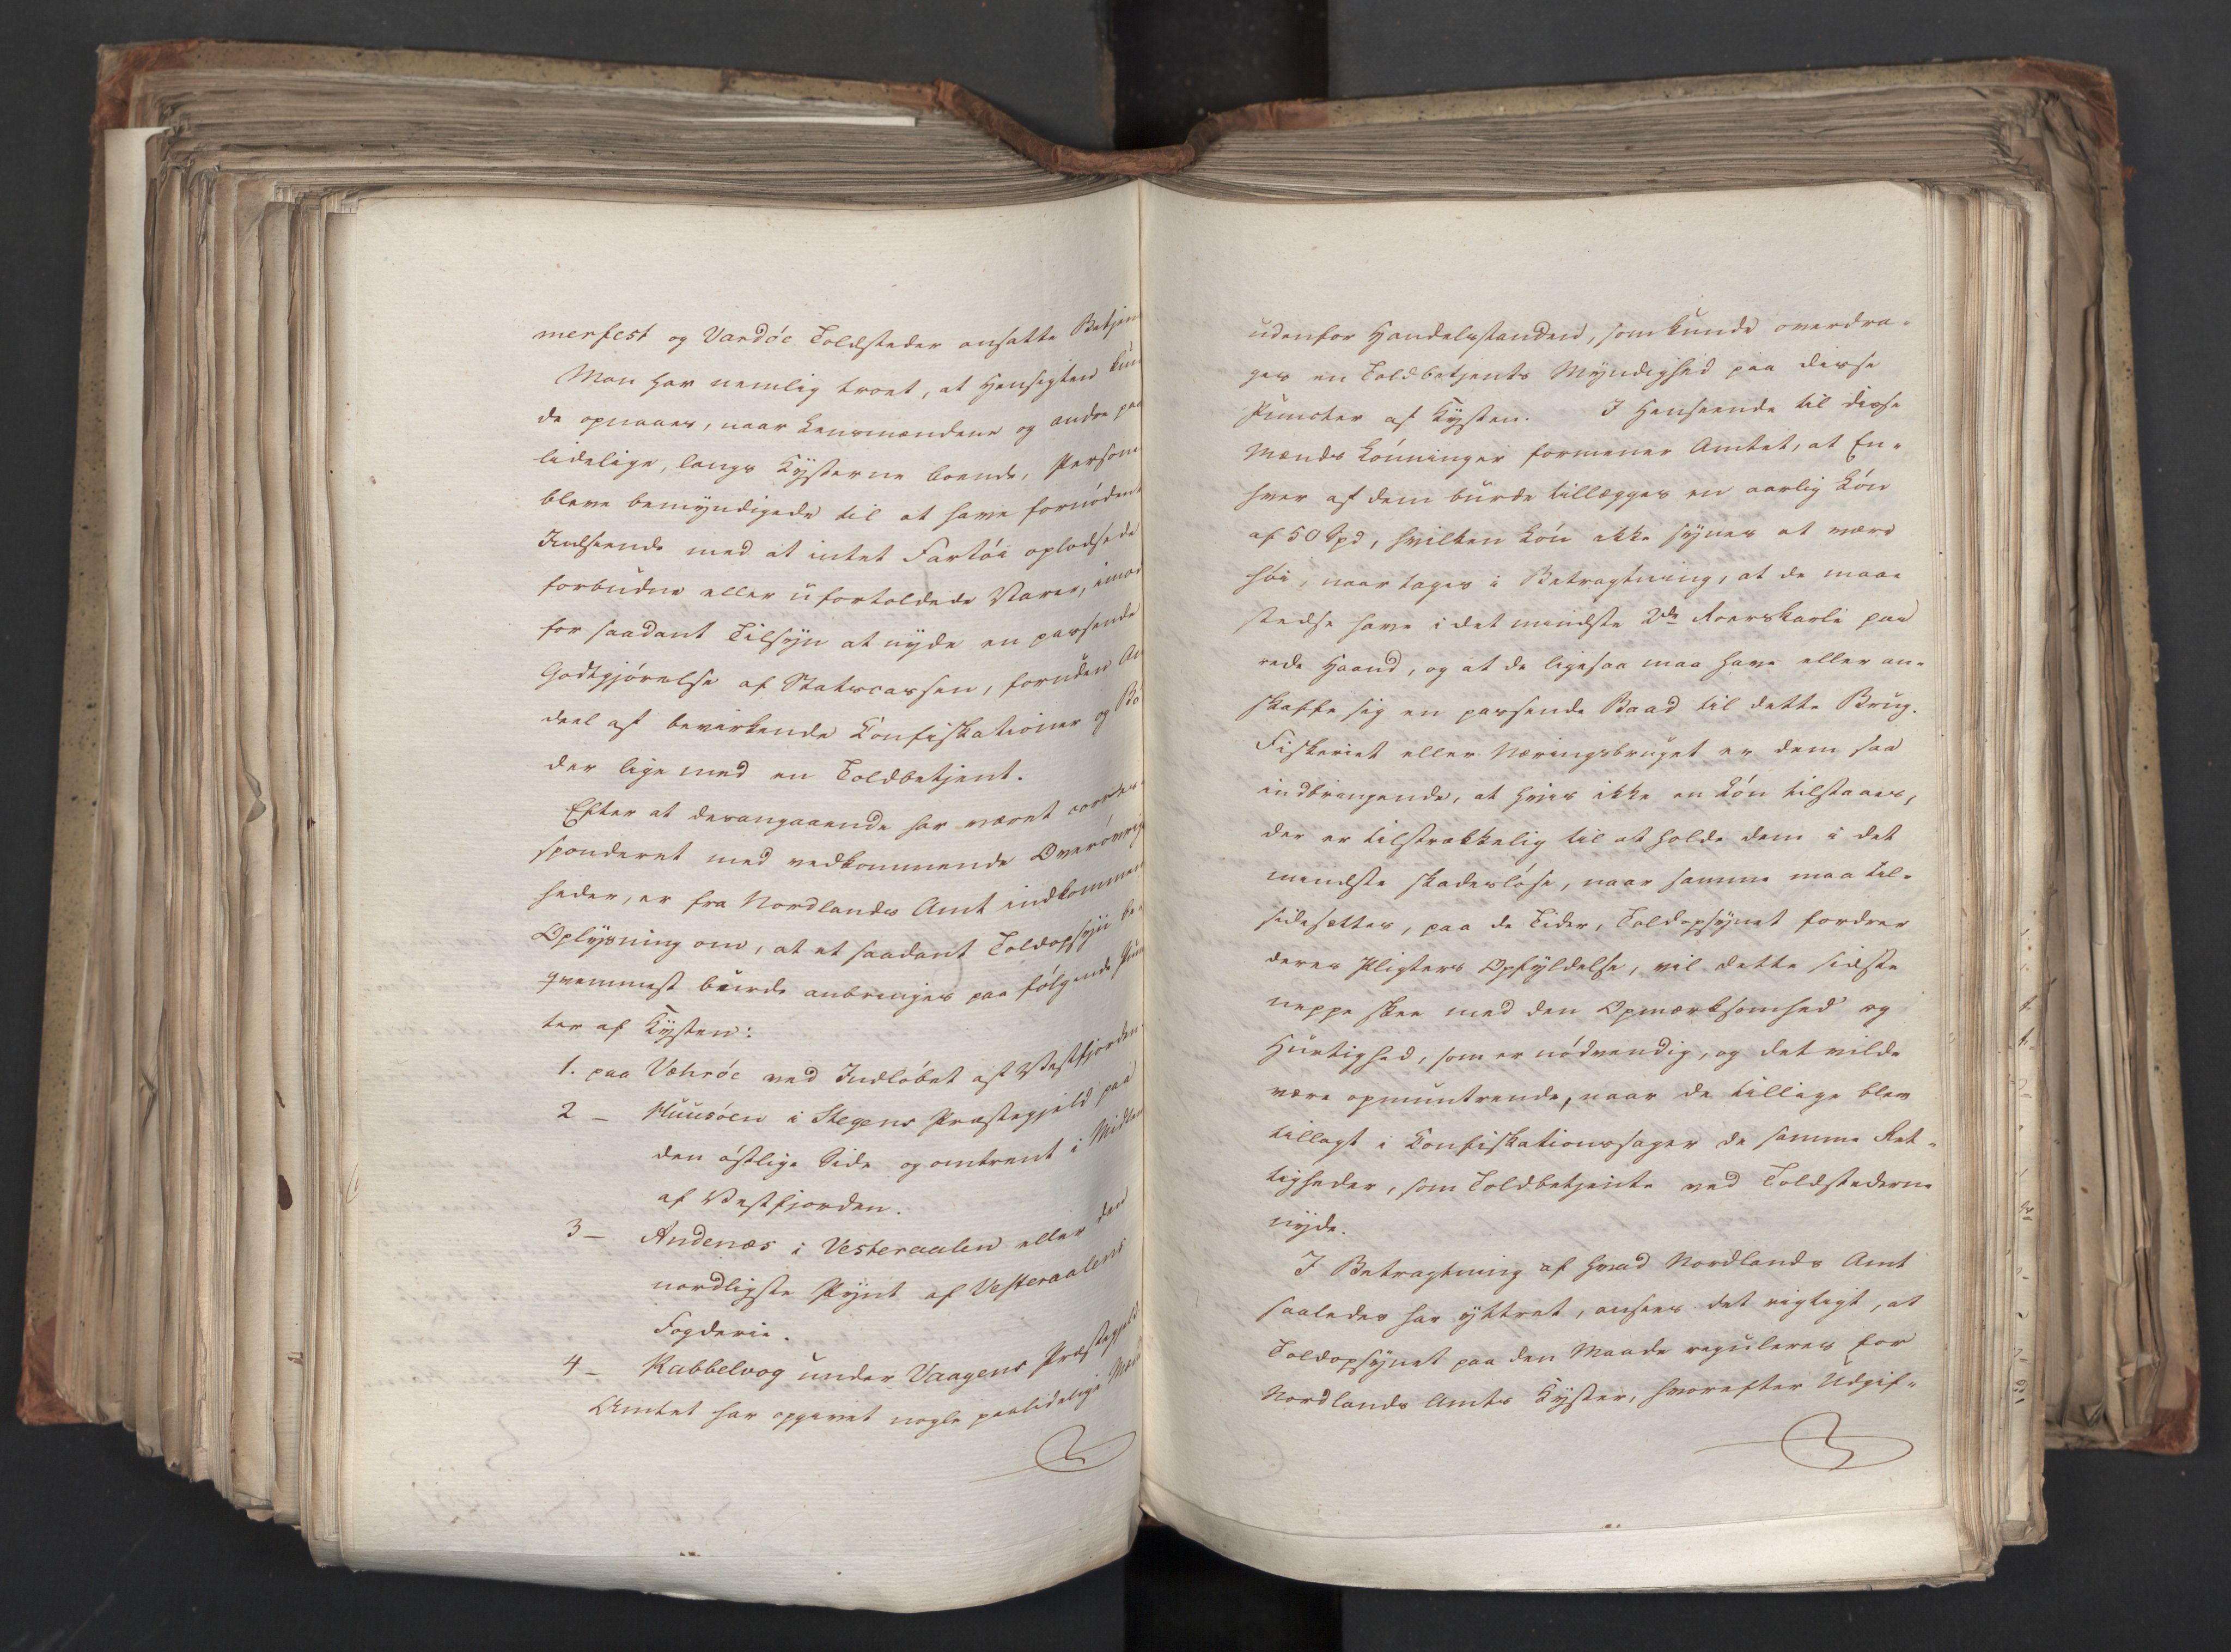 merfest og Vardöe Toldsteder ansatte Betjen
Man har nemlig troet, at Hensigten kun
de opnaaes, naar Lensmændene og andre paa
lidelige, langs Kysterne boende, Person
bleve bemyndigede til at have fornödent
Indseende med at intet Fartöi oplodsede
forbudne eller ufortoldede Varer, imod
for saadant Tilsyn at nyde en passende
Godtgjörelse af Statscassen, foruden An
deel af bevirkende Konfiskationer og Bö
der lige med en Toldbetjent.
Efter at desangaaende har været corre
sponderet med vedkommende Överövrig
heder, er fra Nordlands Amt indkommen
Oplysning om, at et saadant Toldopsyn be-
qvemmest burde anbringes paa fölgende Punc
ter af Kysten:
1. paa Væhröe ved Indlöbet af Vestfjorden
2 — Skuusöen i Stegens Præstegjeld paa
den östlige Side og omtrent i Midten
af Vestfjorden.
3 — Andenæs i Vesteraalen eller den
nordligste Pynt af Vesteraalens
Fogderie.
4 — Kabbelvog under Vaagens Præstegjeld
Amtet har opgivet nogle paalidelige Mænd
udenfor Handelsstanden, som kunde overdra-
ges en Toldbetjents Myndighed paa disse
Puncter af Kysten. I Henseende til disse
Mænds Lönninger formener Amtet, at En-
hver af dem burde tillægges en aarlig Lön
af 50 Spd, hvilken Lön ikke synes at være
höi, naar tages i Betragtning, at de maae
stedse have i det mindste 2de Roerskarle paa
rede Haand, og at de ligesaa maa have eller an-
skaffe sig en passende Baad til dette Brug.
Fiskeriet eller Næringsbruget er dem saa
indbringende, at hvis ikke en Lön tilstaaes,
der er tilstrækkelig til at holde dem i det
mindste skadeslöse, naar samme maa til-
sidesættes, paa de Tider, Toldopsynet fordrer
deres Pligters Opfyldelse, vil dette sidste
neppe skee med den Opmærksomhed og
Hurtighed, som er nödvendig, og det vilde
være opmuntrende, naar de tillige blev
tillagt i Konfiskationssager de samme Ret-
tigheder, som Toldbetjente ved Toldstederne
nyde.
I Betragtning af hvad Nordlands Amt
saaledes har yttret, ansees det rigtigt, at
Toldopsynet paa den Maade reguleres for
Nordlands Amts Kyster, hvorefter Udgif-